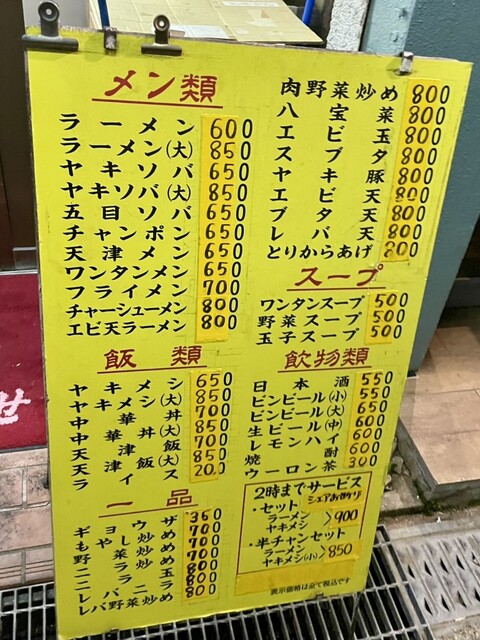 メン類
ラーメン 600
ラーメン(大) 850
ヤキソバ 650
ヤキソバ(大) 850
五目ソバ 650
チャンポン 650
天津メン 650
ワンタンメン 650
フライメン 700
チャーシューメン 800
エビ天ラーメン 800
飯類
ヤキメシ 650
ヤキメシ(大) 850
中華丼 700
中華丼(大) 850
天津飯 700
天津飯(大) 850
ライス 200
一品
ギョウザ 350
もやし炒め 700
野菜炒め 700
ニラ炒め 700
ニラ玉 800
レバニラ 800
レバ野菜炒め 800
肉野菜炒め 800
八宝菜 800
エビ玉 800
スブタ 800
ヤキ豚 800
エビ天 800
ブタ天 800
レバ天 800
とりからあげ 800
スープ
ワンタンスープ 500
野菜スープ 500
玉子スープ 500
飲物類
日本酒 550
ビンビール(小) 550
ビンビール(大) 650
生ビール(中) 600
レモンハイ 600
焼酎 600
ウーロン茶 300
2時までサービス
・セット
ラーメン
ヤキメシ >900
・半チャンセット
ラーメン
ヤキメシ(小) >850
表示価格は全て税込です